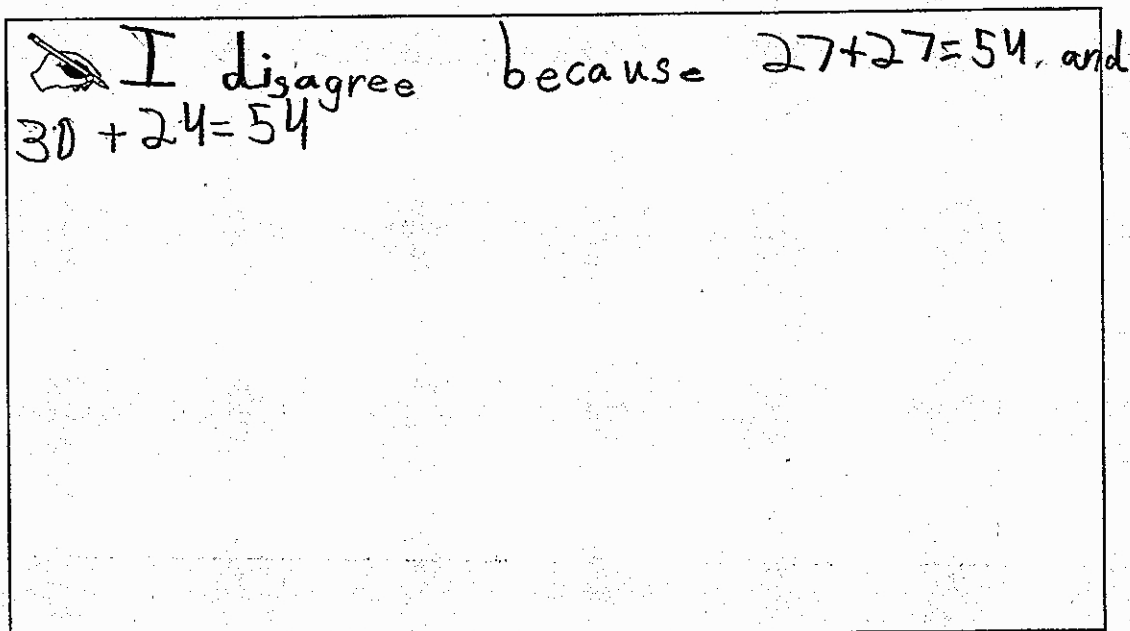 I disagree because 27+27=54. and
30+24=54